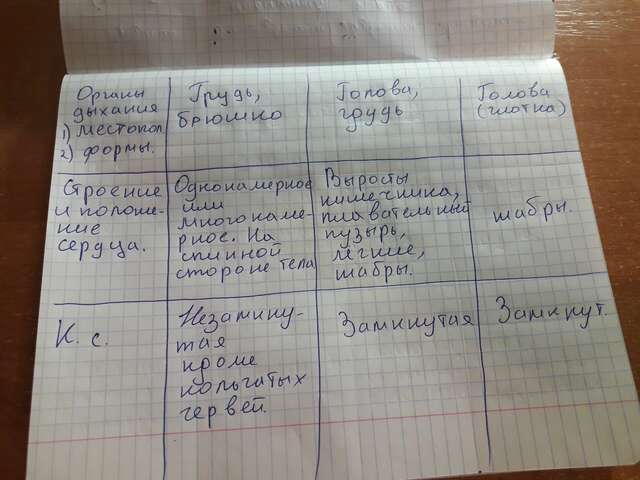 Органы
дыхания
1) местопол
2) формы.
Грудь,
брюшко
Голова,
грудь
Голова
(глотка)
Строение
и положе-
ние
сердца.
Однокамерное
или
многокаме-
рное. На
спинной
стороне тела
Выросты
кишечника,
плавательный
пузырь,
лёгкие,
жабры.
жабры.
К. с.
Незамкну-
тая
кроме
кольчатых
червей.
Замкнутая
Замкнут.